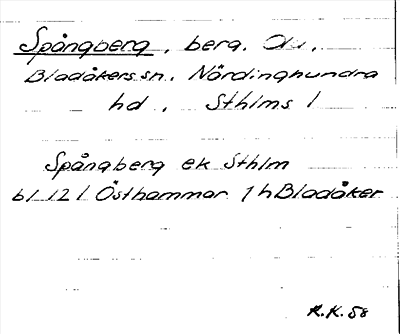 Spångberg, berg.
Bladåkers sn. Närdinghundra
hd, Sthlms l
Spångberg ek Sthlm
bl 121 Östhammar 1 h Bladåker
R.K. 58